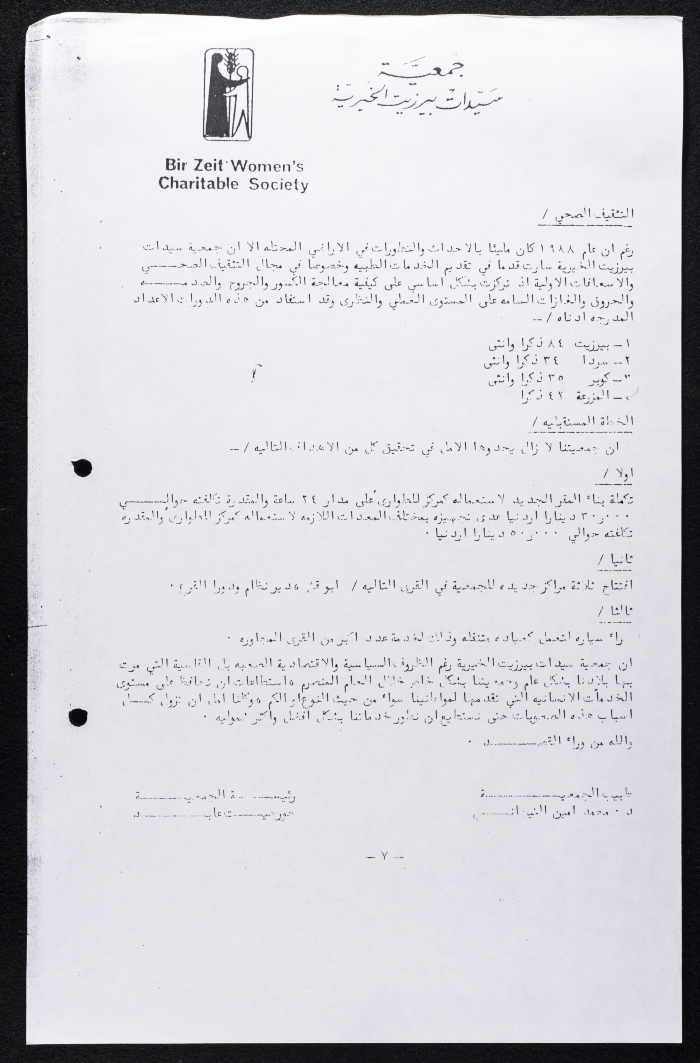 جمعية
سيدات بيرزيت الخيرية
Bir Zeit Women's
Charitable Society
التثقيف الصحي /
رغم ان عام ١٩٨٨ كان مليئا بالاحداث والتطورات في الاراضي المحتله الا ان جمعية سيدات
بيرزيت الخيرية سارت قدما في تقديم الخدمات الطبيه وخصوصا في مجال التثقيف الصحــــي
والاسعافات الاولية اذ تركزت بشكل اساسي على كيفية معالجة الكسور والجروح والصدمـــه
والحروق والغازات السامه على المستوى العملي والنظري وقد استفاد من هذه الدورات الاعداد
المدرجه ادناه /--
١- بيرزيت ٨٤ ذكرا وانثى
٢- سردا ٣٤ ذكرا وانثى
٣- كوبر ٣٥ ذكرا وانثى
٤- المزرعة ٤٢ ذكرا
الخطة المستقبليه /
ان جمعيتنا لا زال يحدوها الامل في تحقيق كل من الاهداف التاليه /--
اولا /
تكملة بناء المقر الجديد لاستعماله كمركز للطوارئ على مدار ٢٤ ساعة والمقدرة تكلفته حوالــــي
٣٠,٠٠٠ دينارا اردنيا عدى تجهيزه بمختلف المعدات اللازمه لاستعماله كمركز للطوارئ والمقدره
تكلفته حوالي ٥٠,٠٠٠ دينارا اردنيا .
ثانيا /
افتتاح ثلاثة مراكز جديده للجمعية في القرى التاليه / ابو قش ودير نظام ودورا القرع .
ثالثا /
راء سياره لتعمل كعياده متنقله وذلك لخدمة عدد اكبر من القرى المجاوره .
ان جمعية سيدات بيرزيت الخيرية رغم الظروف السياسية والاقتصادية الصعبه بل القاسية التي مرت
بها بلادنا بشكل عام وجمعيتنا بشكل خاص خلال العام المنصرم استطاعت ان تحافظ على مستوى
الخدمات الانسانيه التي تقدمها لمواطنينا سواء من حيث النوع او الكم وكلنا امل ان تزول كـــل
اسباب هذه الصعوبات حتى نستطيع ان نطور خدماتنا بشكل افضل واكثر شموليه .
والله من وراء القصــــد .
طبيب الجمعيـــــة
رئيســـة الجمعيـــــة
د . محمد امين
جورجيـــت عابـــــد
- ٧ -